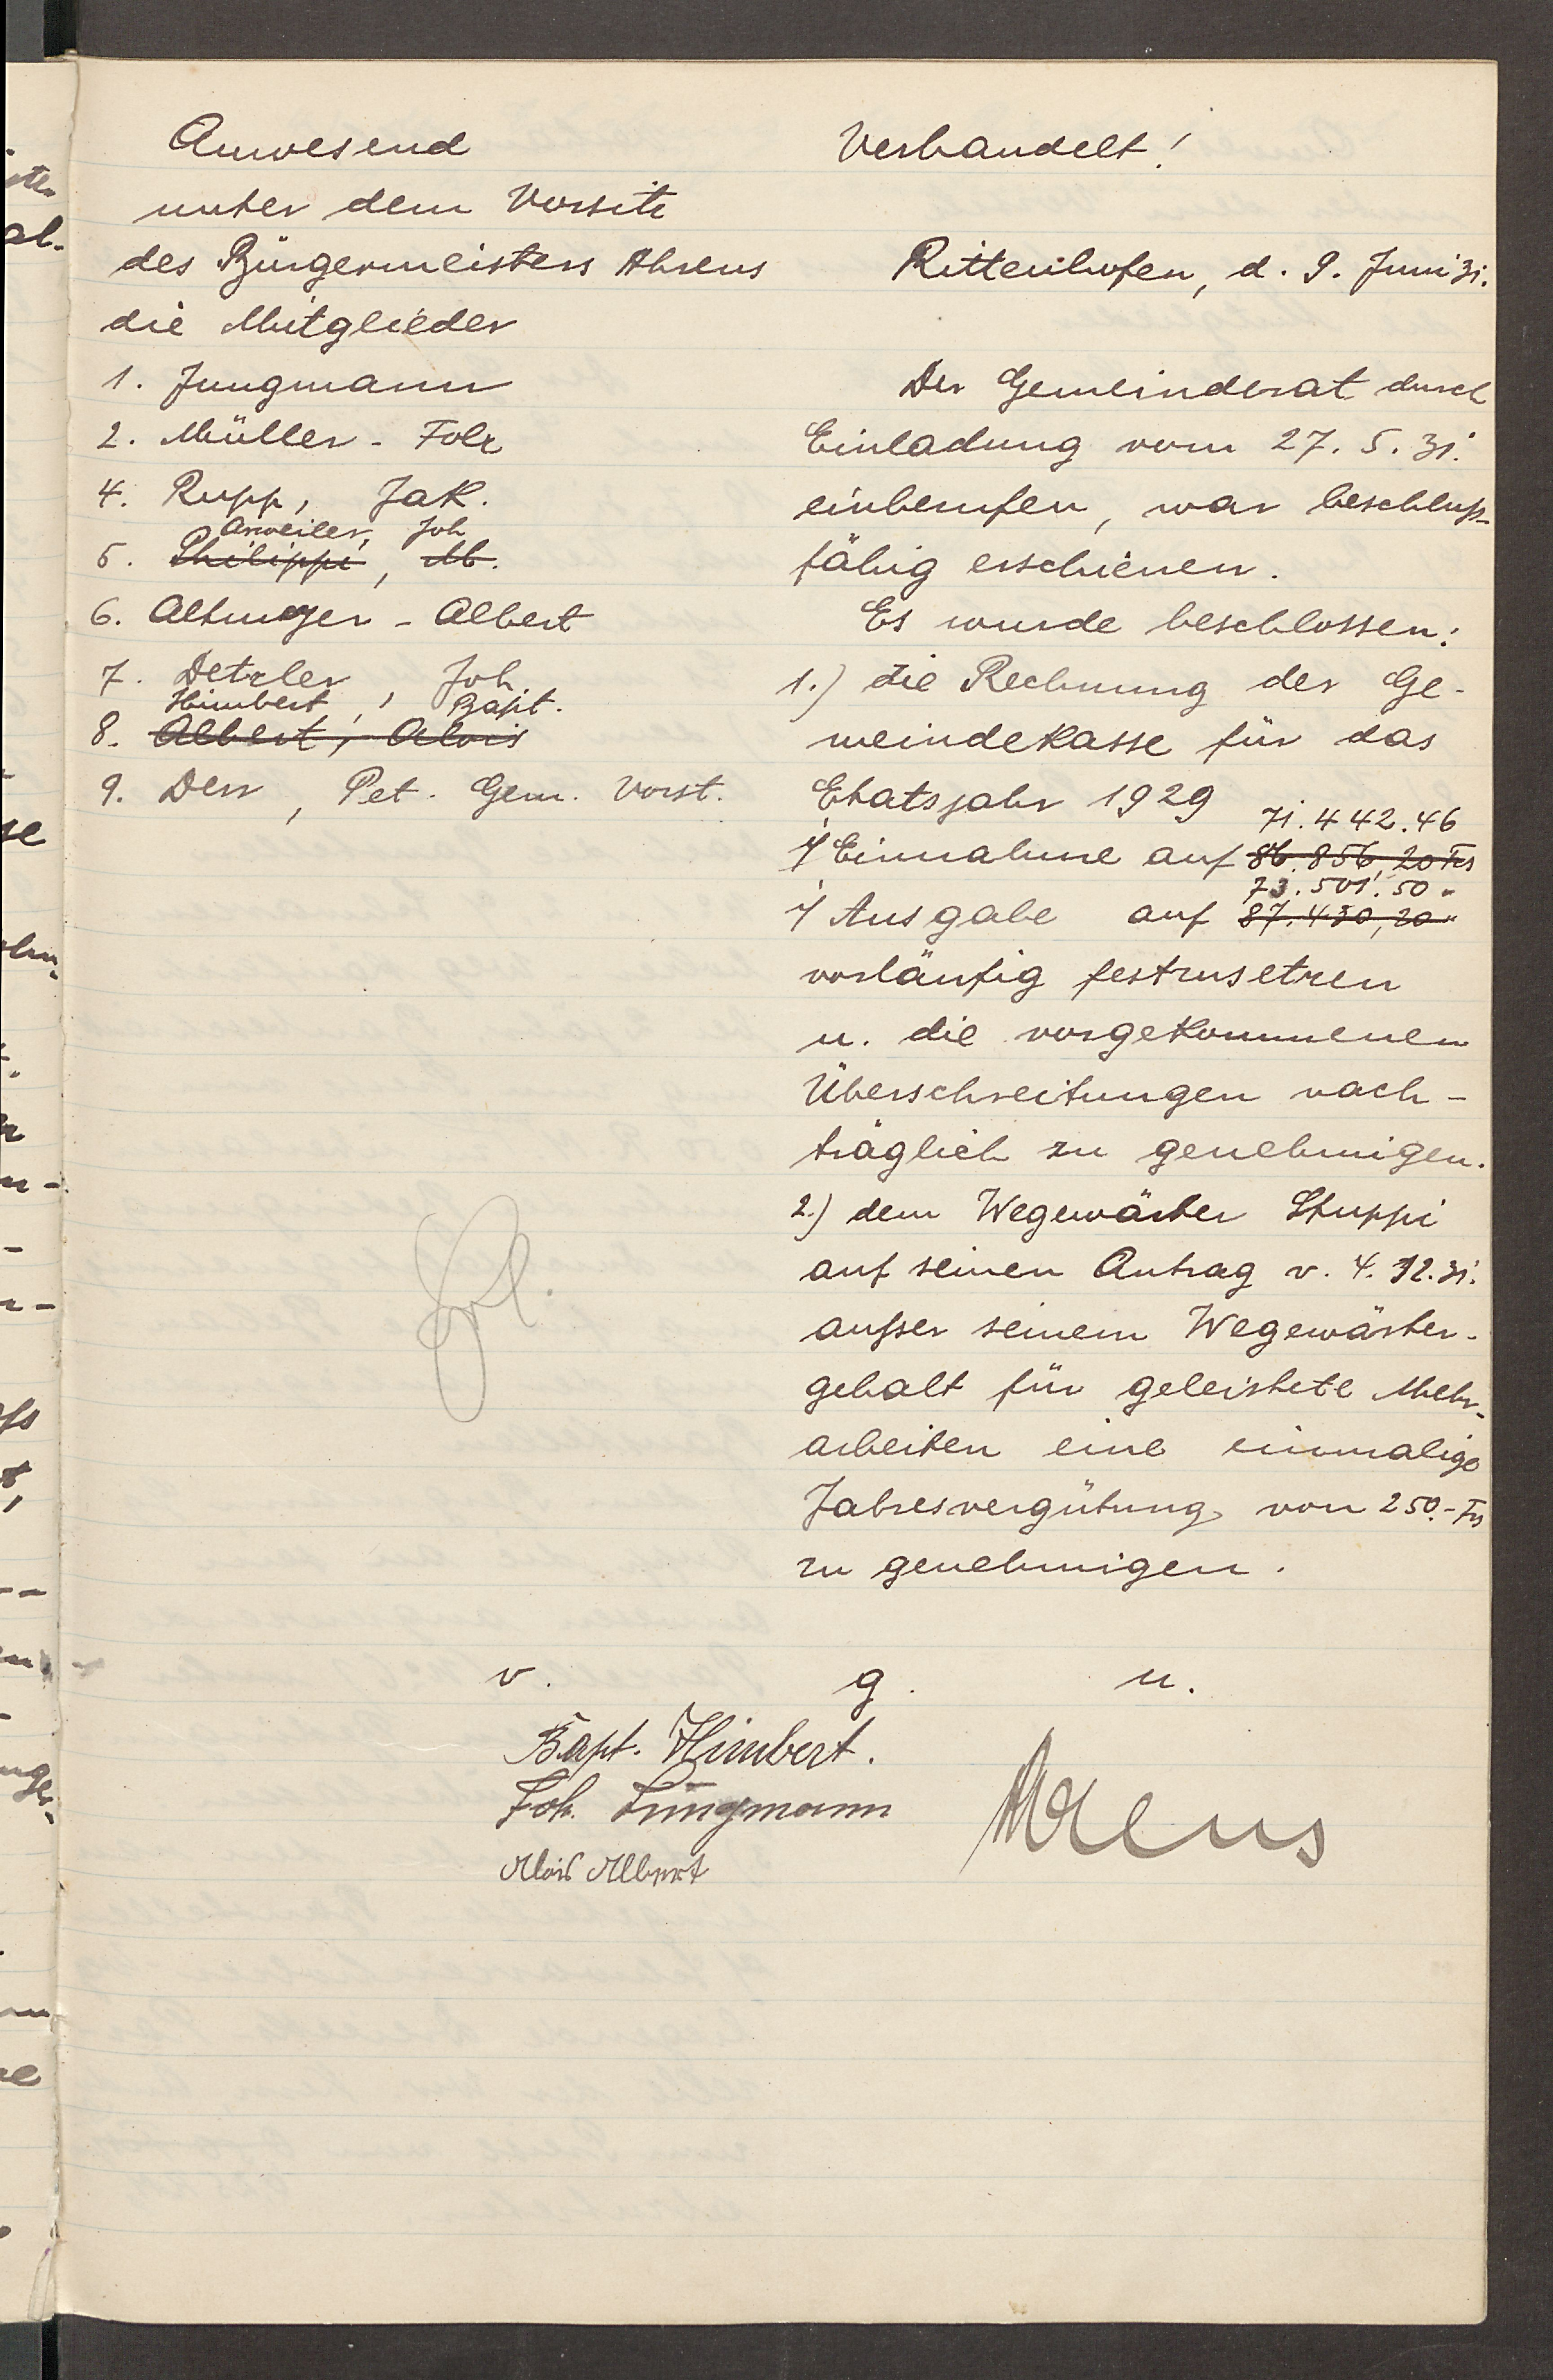 Anwesend
unter dem Vorsitz
des Bürgermeisters Ahrens
die Mitglieder
1. Jungmann
2. Müller - Folz
4. Rupp, Jak.
Arweiler, Joh
5. Philippi, M.
6. Altmeyer - Albert
7. Detzler, Joh
Himbert, Bapt.
8. Albert, Alois
9. Derr, Pet. Gem. Vorst.
Verhandelt!
Rittenhofen, d. 9. Juni 31.
Der Gemeinderat durch
Einladung vom 27. 5. 31.
einberufen, war beschluß-
fähig erschienen.
Es wurde beschlossen:
1.) die Rechnung der Ge-
meindekasse für das
Etatsjahr 1929
71.442.46
i/ Einnahme auf 86.856,20 Frs
73.501.50 "
i/ Ausgabe auf 87.430,20 "
vorläufig festzusetzen
u. die vorgekommenen
Überschreitungen nach-
träglich zu genehmigen.
2.) dem Wegewärter Stuppi
auf seinen Antrag v. 4. 12. 31.
außer seinem Wegewärter-
gehalt für geleistete Mehr-
arbeiten eine einmalige
Jahresvergütung von 250.- Frs
zu genehmigen.
Erl.
v. g. u.
Bapt. Himbert.
Joh. Jungmann
Alois Albert
Ahrens